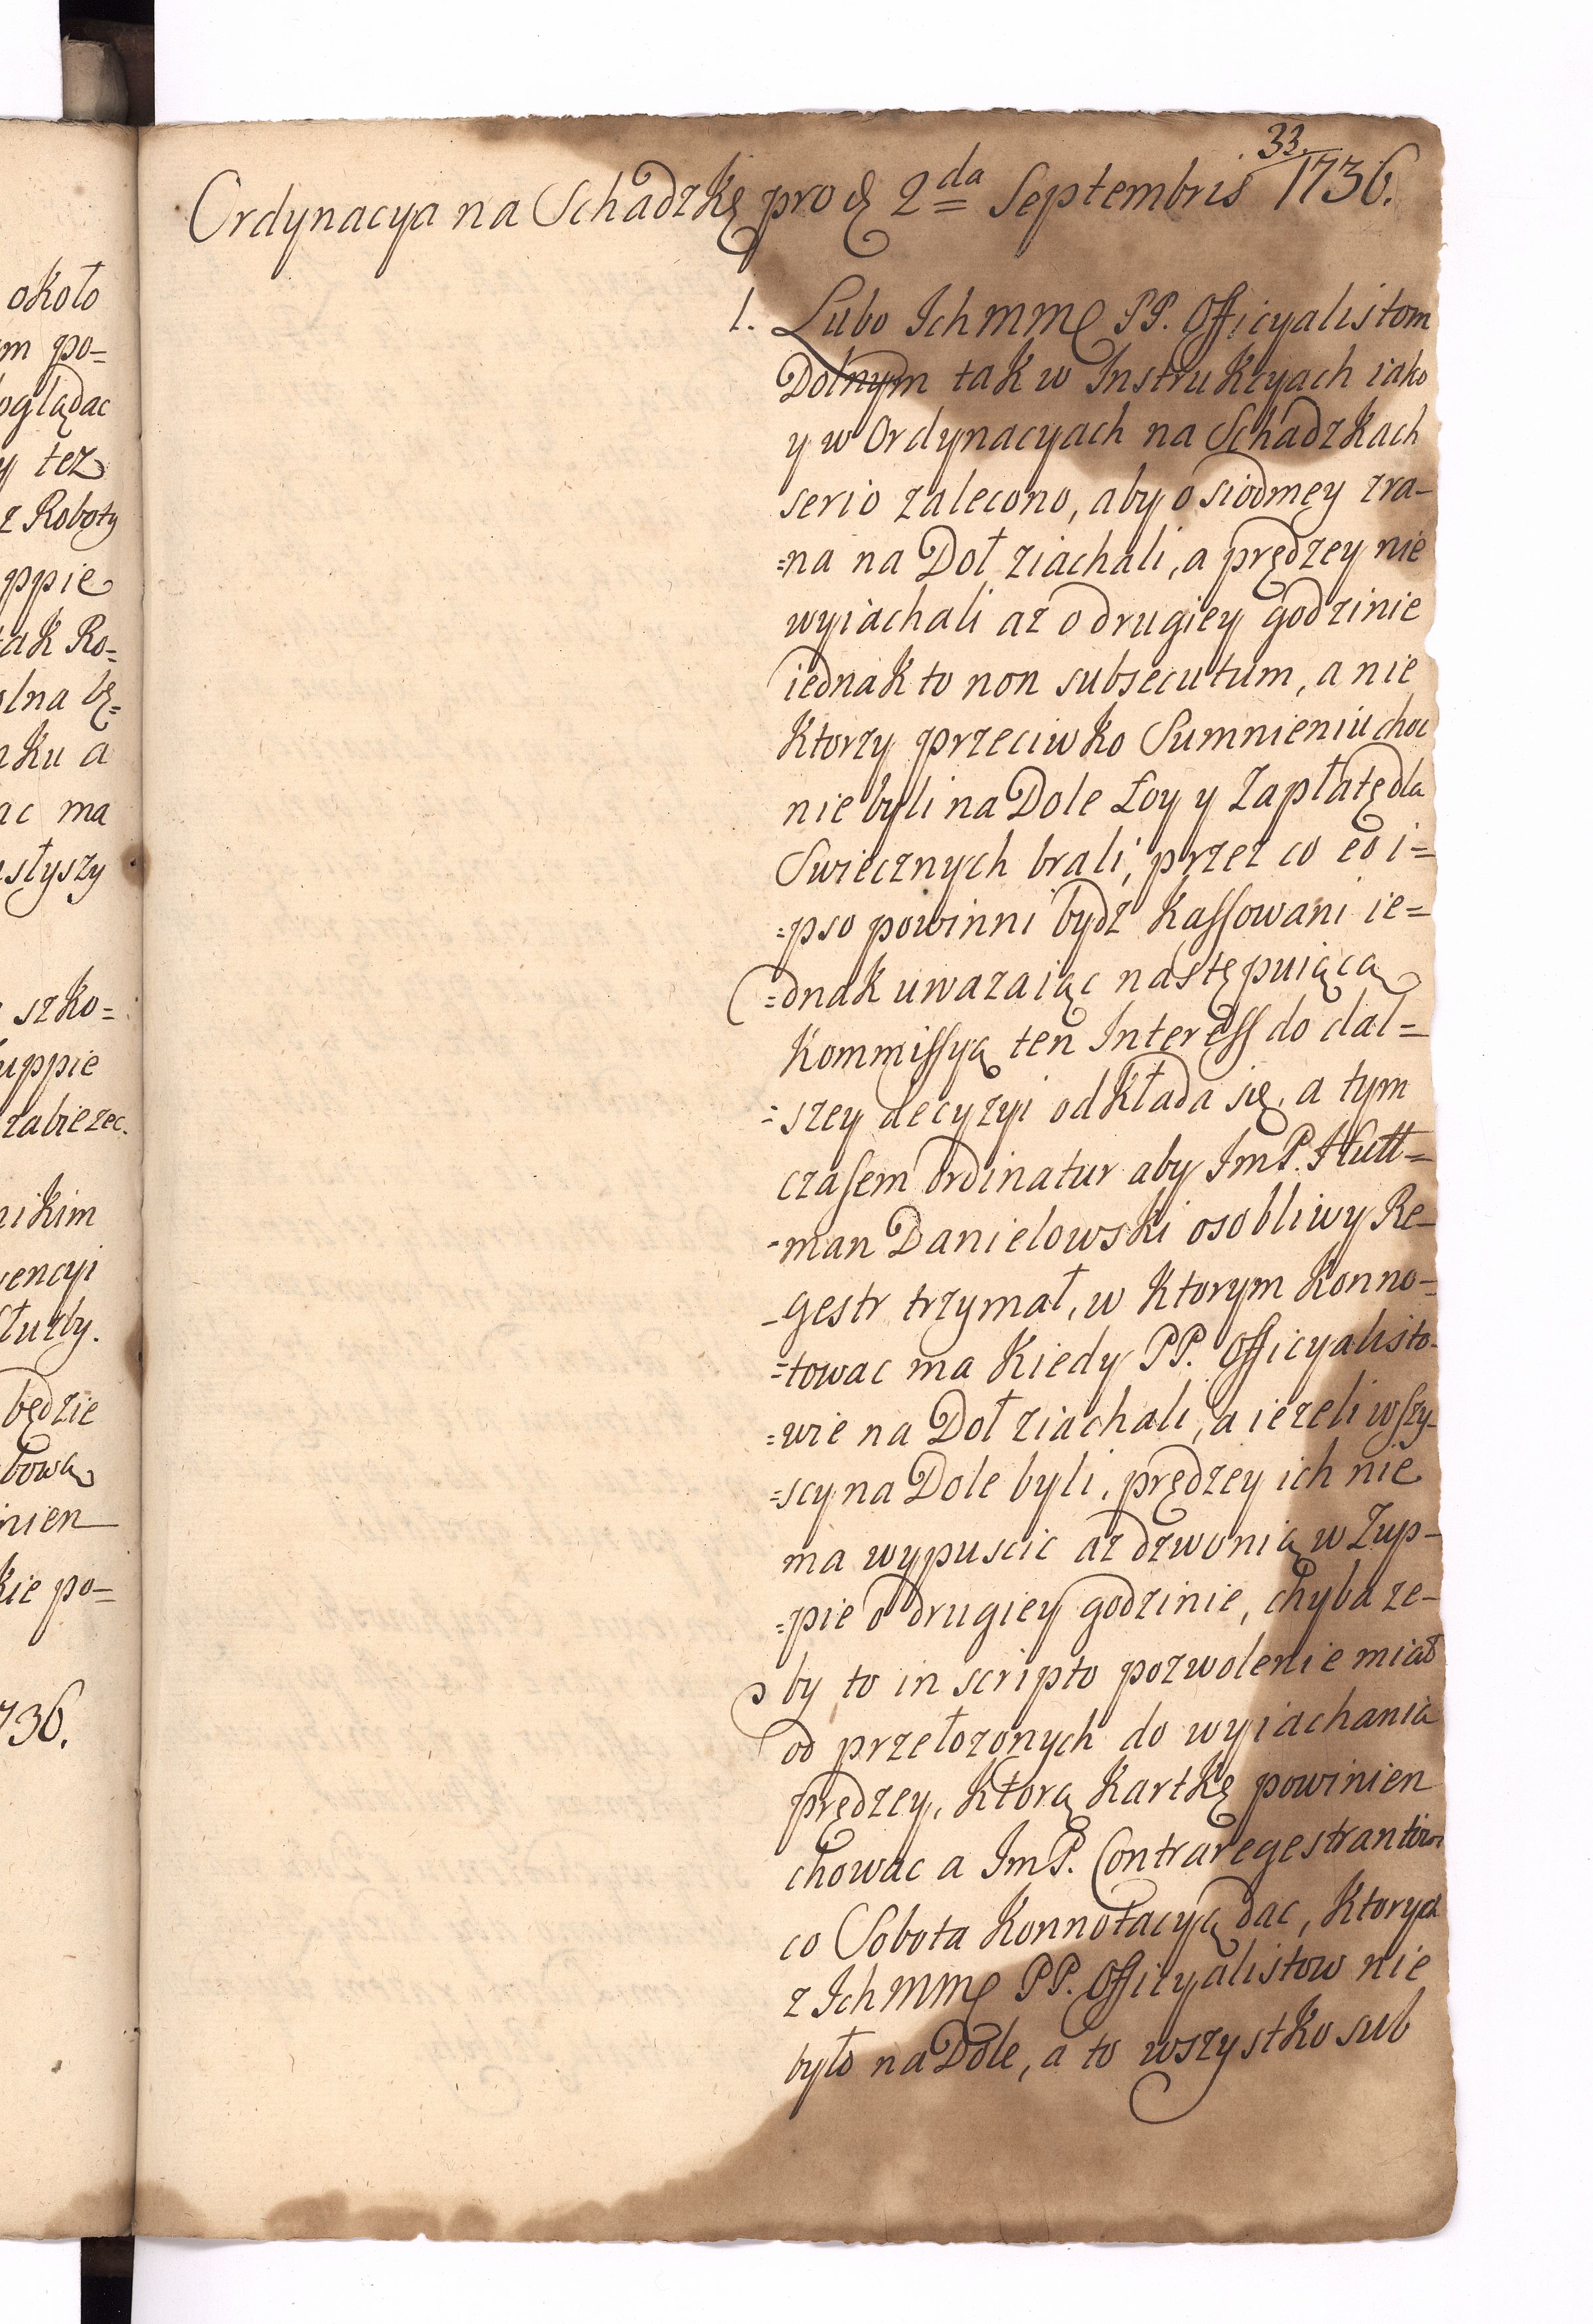 około
m po=
oglądac
y tez
z Roboty
ppie
tak Ro=
olna bę=
nku a
ac ma
usłyszy
szko=
uppie
zabiezec.
nikim
wencyi
służby.
będzie
bową
nien
kie po=
736.
33.
Ordynacya na Schadzkę pro d 2da Septembris 1736.
1. Lubo Ichmme PP. Officyalistom
Dolnym tak w Instrukcyach iako
y w Ordynacyach na Schadzkach
serio zalecono, aby o siodmey zra-
=na na Doł ziachali, a prędzey nie
wyiachali az o drugiey godzinie
iednak to non subsecutum, a nie
Ktorzy przeciwko Sumnieniu choc
nie byli na Dole Łoy y Zapłatę dla
Swiecznych brali, przez co eo i=
=pso powinni bydz Kassowani ie=
=dnak uwazaiąc następuiącą
Kommissyą ten Interess do dal=
=szey decyzyi odkłada się, a tym
czasem ordinatur aby ImP. Hutt=
-man Danielowski osobliwy Re-
-gestr trzymał, w Ktorym Konno-
=towac ma Kiedy PP. Officyalisto-
=wie na Doł ziachali, a iezeli wszy-
=scy na Dole byli, prędzey ich nie
ma wypuscic az dzwonią w Zup-
=pie o drugiey godzinie, chyba ze-
by to in scripto pozwolenie miał
od przełozonych do wyiachania
prędzey, Ktorą Kartkę powinien
chowac a ImP. Contraregestrantowi
co Sobota Konnotacyą dac, Ktorych
z Ichmme PP. Officyalistow nie
było na Dole, a to wszystko sub